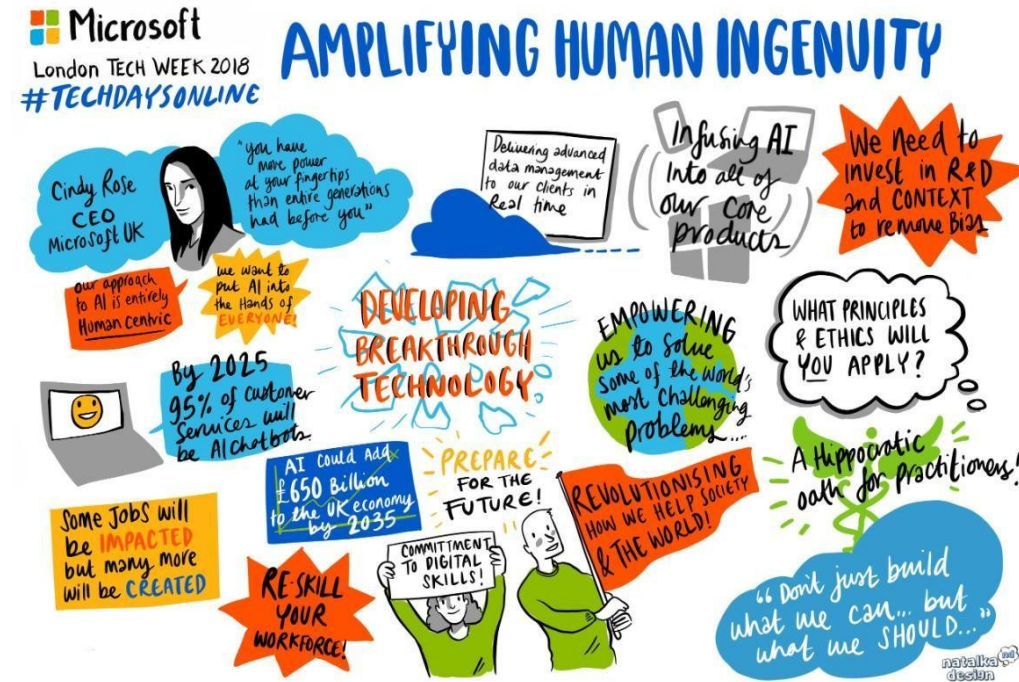 Microsoft
London TECH WEEK 2018
#TECHDAYSONLINE
AMPLIFYING HUMAN INGENUITY
Cindy Rose
CEO
Microsoft UK
"you have
more power
at your fingertips
than entire generations
had before you"
Delivering advanced
data management
to our clients in
Real time
Infusing AI
Into all of
our core
products
We need to
invest in R&D
and CONTEXT
to remove Bias
our approach
to AI is entirely
Human Centric
we want to
put AI into
the Hands of
EVERYONE!
DEVELOPING
BREAKTHROUGH
TECHNOLOGY
EMPOWERING
us to solve
some of the world's
most challenging
problems....
WHAT PRINCIPLES
& ETHICS WILL
YOU APPLY?
By 2025
95% of customer
services will
be AI chatbots
AI could Add
£650 Billion
to the UK economy
by 2035
PREPARE
FOR THE
FUTURE!
REVOLUTIONISING
HOW WE HELP SOCIETY
& THE WORLD!
A Hippocratic
oath for Practitioners!
Some Jobs will
be IMPACTED
but many more
will be CREATED
RE-SKILL
YOUR
WORKFORCE!
COMMITTMENT
TO DIGITAL
SKILLS!
"Don't just build
what we can... but
what we SHOULD..."
natalka
design
nd